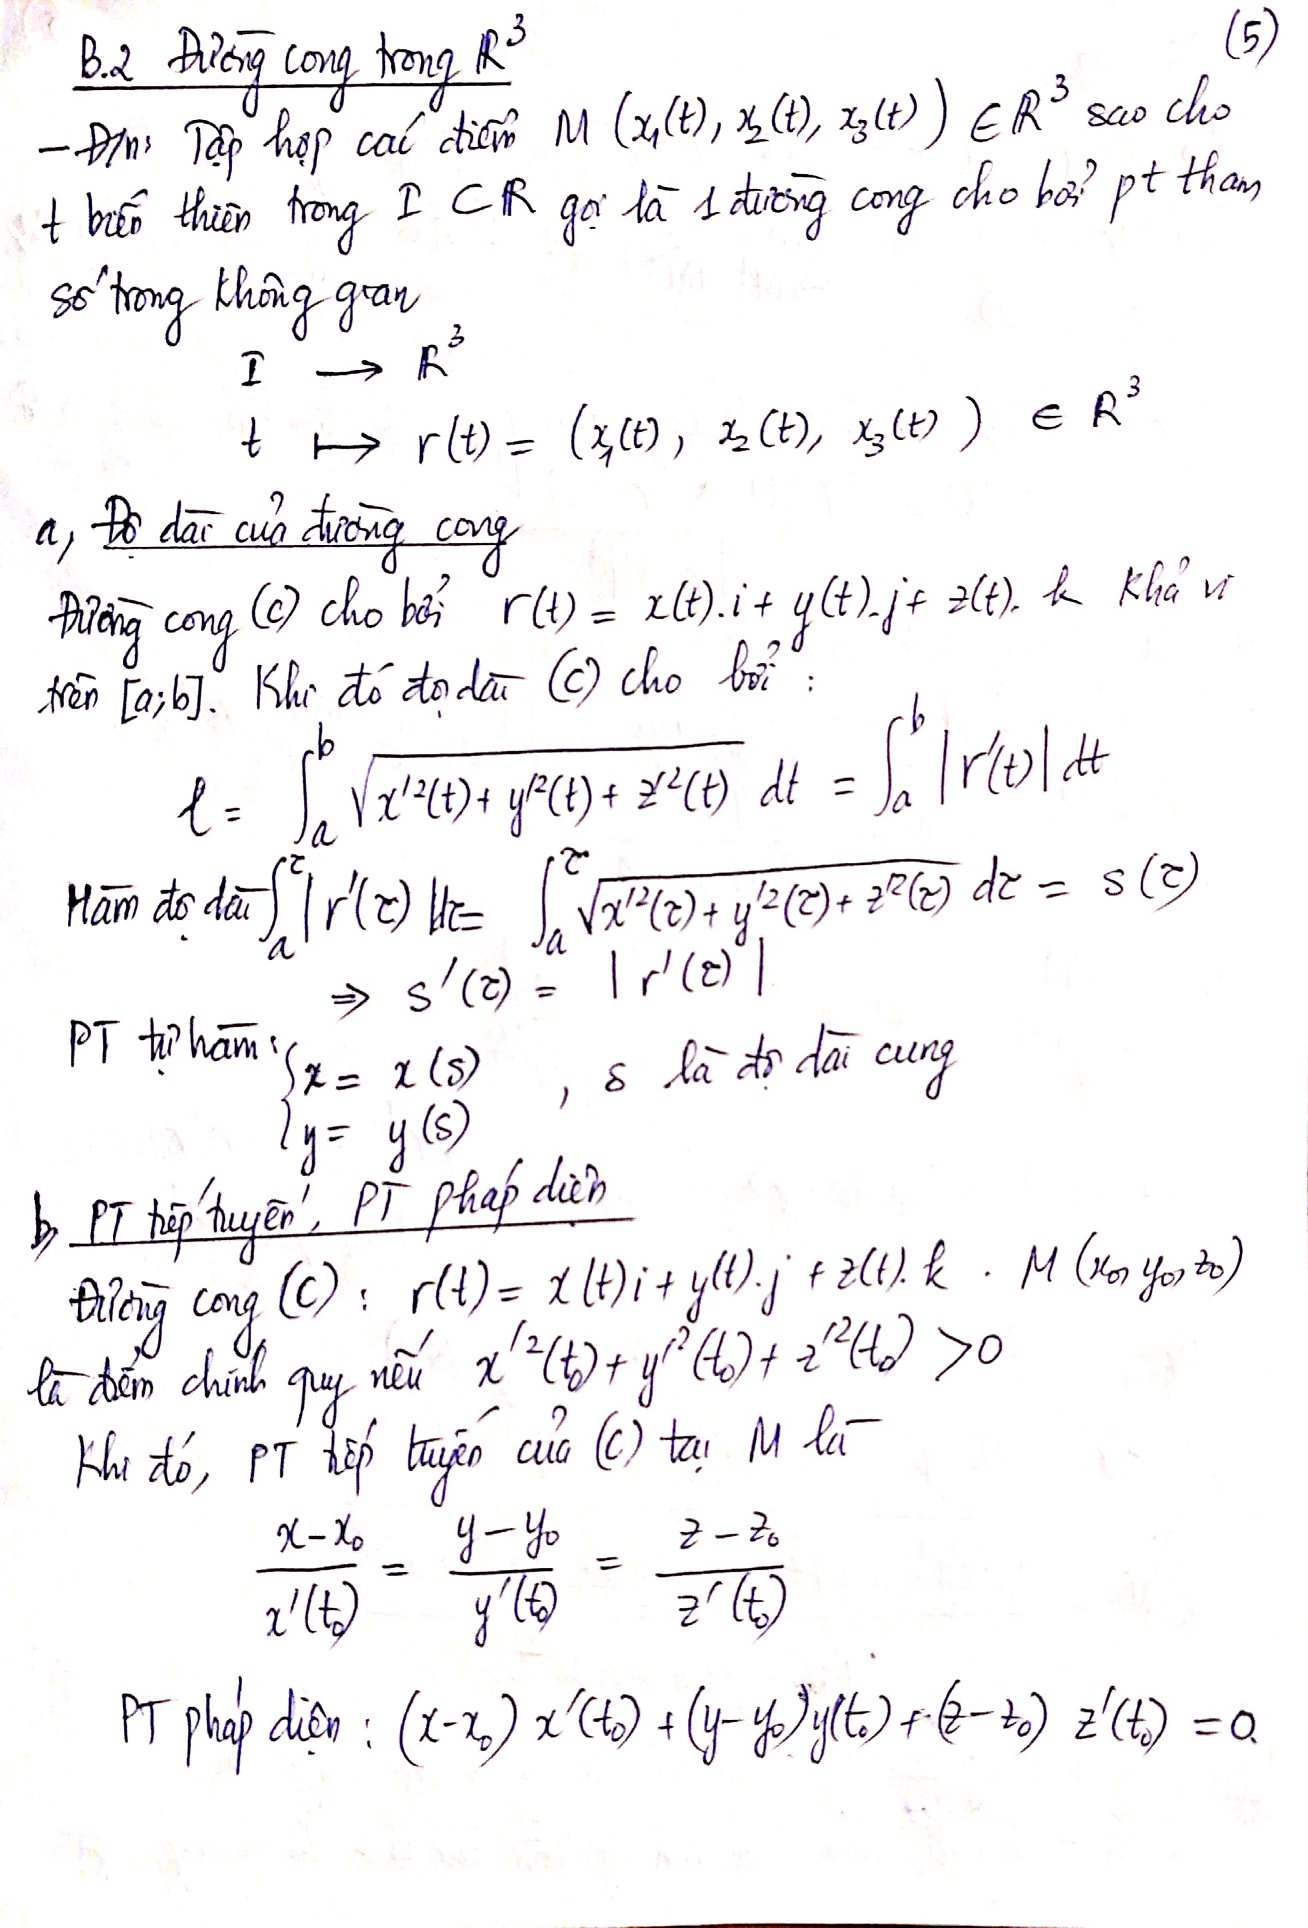 (5)
B.2 Đường cong trong ℝ³
- Đ/n: Tập hợp các điểm M (x₁(t), x₂(t), x₃(t)) ∈ ℝ³ sao cho
t biến thiên trong I ⊂ ℝ gọi là 1 đường cong cho bởi pt tham
số trong không gian
I → ℝ³
t ↦ r(t) = (x₁(t), x₂(t), x₃(t)) ∈ ℝ³
a, Độ dài của đường cong
Đường cong (C) cho bởi r(t) = x(t).i + y(t).j + z(t).k khả vi
trên [a;b]. Khi đó độ dài (C) cho bởi:
l = ∫ₐᵇ √(x'²(t) + y'²(t) + z'²(t)) dt = ∫ₐᵇ |r'(t)| dt
Hàm độ dài ∫ₐ^τ |r'(τ)| dτ = ∫ₐ^τ √(x'²(τ) + y'²(τ) + z'²(τ)) dτ = s(τ)
⇒ s'(τ) = |r'(τ)|
PT tự hàm: { x = x(s) , s là độ dài cung
{ y = y(s)
b, PT tiếp tuyến, PT pháp diện
Đường cong (C): r(t) = x(t)i + y(t).j + z(t).k . M (x₀, y₀, z₀)
là điểm chính quy nếu x'²(t₀) + y'²(t₀) + z'²(t₀) > 0
Khi đó, PT tiếp tuyến của (C) tại M là
(x-x₀)/x'(t₀) = (y-y₀)/y'(t₀) = (z-z₀)/z'(t₀)
PT pháp diện: (x-x₀) x'(t₀) + (y-y₀) y'(t₀) + (z-z₀) z'(t₀) = 0.